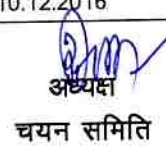 10.12.2016
अध्यक्ष
चयन समिति